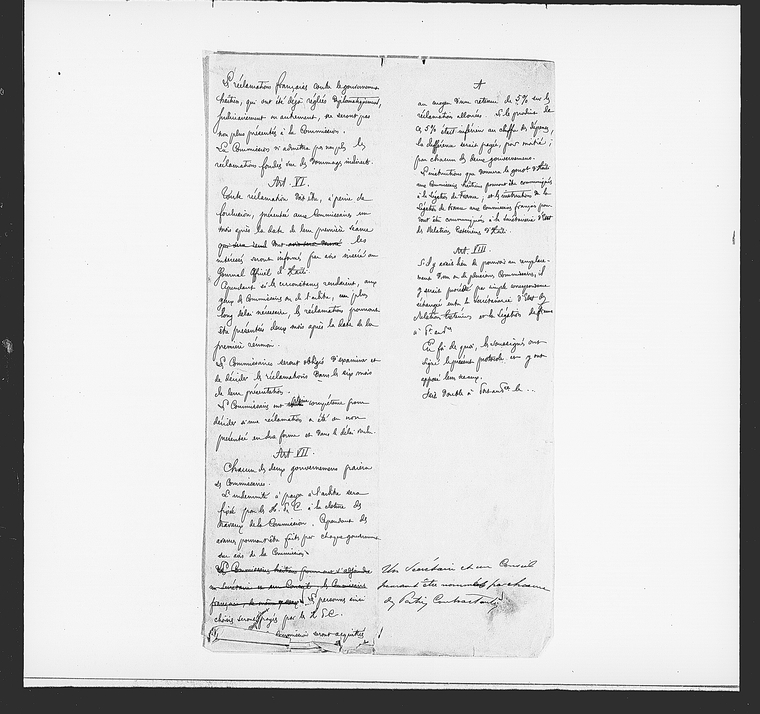 Les réclamations françaises contre le gouvernement
haïtien, qui ont été déjà réglées diplomatiquement,
judiciairement ou autrement, ne seront pas
non plus présentées à la Commission.
La Commission n'admettra pas non plus les
réclamations fondées sur des dommages indirects.
Art. VI.
Toute réclamation doit être, à peine de
forclusion, présentée aux Commissaires un
mois après la date de leur première séance
les
intéressés seront informés par avis inséré au
Journal Officiel d'Haïti.
Cependant si les circonstances rendaient, aux
yeux des Commissaires ou de l'arbitre, un plus
long délai nécessaire, les réclamations pourront
être présentées deux mois après la date de leur
première réunion.
Les Commissaires seront obligés d'examiner et
de décider les réclamations dans les six mois
de leur présentation.
Les Commissaires ont compétence pour
décider si une réclamation a été ou non
présentée en due forme et dans le délai voulu.
Art. VII.
Chacun des deux gouvernements paiera
ses Commissaires.
L'indemnité à payer à l'arbitre sera
fixée par les H. P. C. à la clôture des
travaux de la Commission. Cependant des
avances pourront être faites par chaque gouvernement
sur avis de la Commission.
Les Commissaires haïtiens pourront s'adjoindre
un Secrétaire et un Conseil, les Commissaires
français, Les personnes ainsi
choisies seront payées par les H. P. C.
seront acquittées
au moyen d'une retenue de 5% sur les
réclamations allouées. Si le produit de
ces 5% était inférieur au chiffre des dépenses,
la différence serait payée, par moitié,
par chacun des deux gouvernements.
Les instructions que donnera le gouvt d'Haïti
aux Commissaires haïtiens pourront être communiquées
à la Légation de France, et les instructions de la
Légation de France aux commissaires français pour-
ront être communiquées à la Secrétairerie d'Etat
des Relations Extérieures d'Haïti.
Art. VIII.
S'il y avait lieu de pourvoir au remplace-
ment d'un ou de plusieurs Commissaires, il
y serait procédé par simple correspondance
échangée entre la Secrétairerie d'Etat des
Relations Extérieures et la Légation de France
à
En foi de quoi, les soussignés ont
signé le présent protocole et y ont
apposé leurs sceaux.
Fait double à Port-au-Pce le ...
Un Secrétaire et un Conseil
pourront être nommés par chacune
des Parties Contractantes